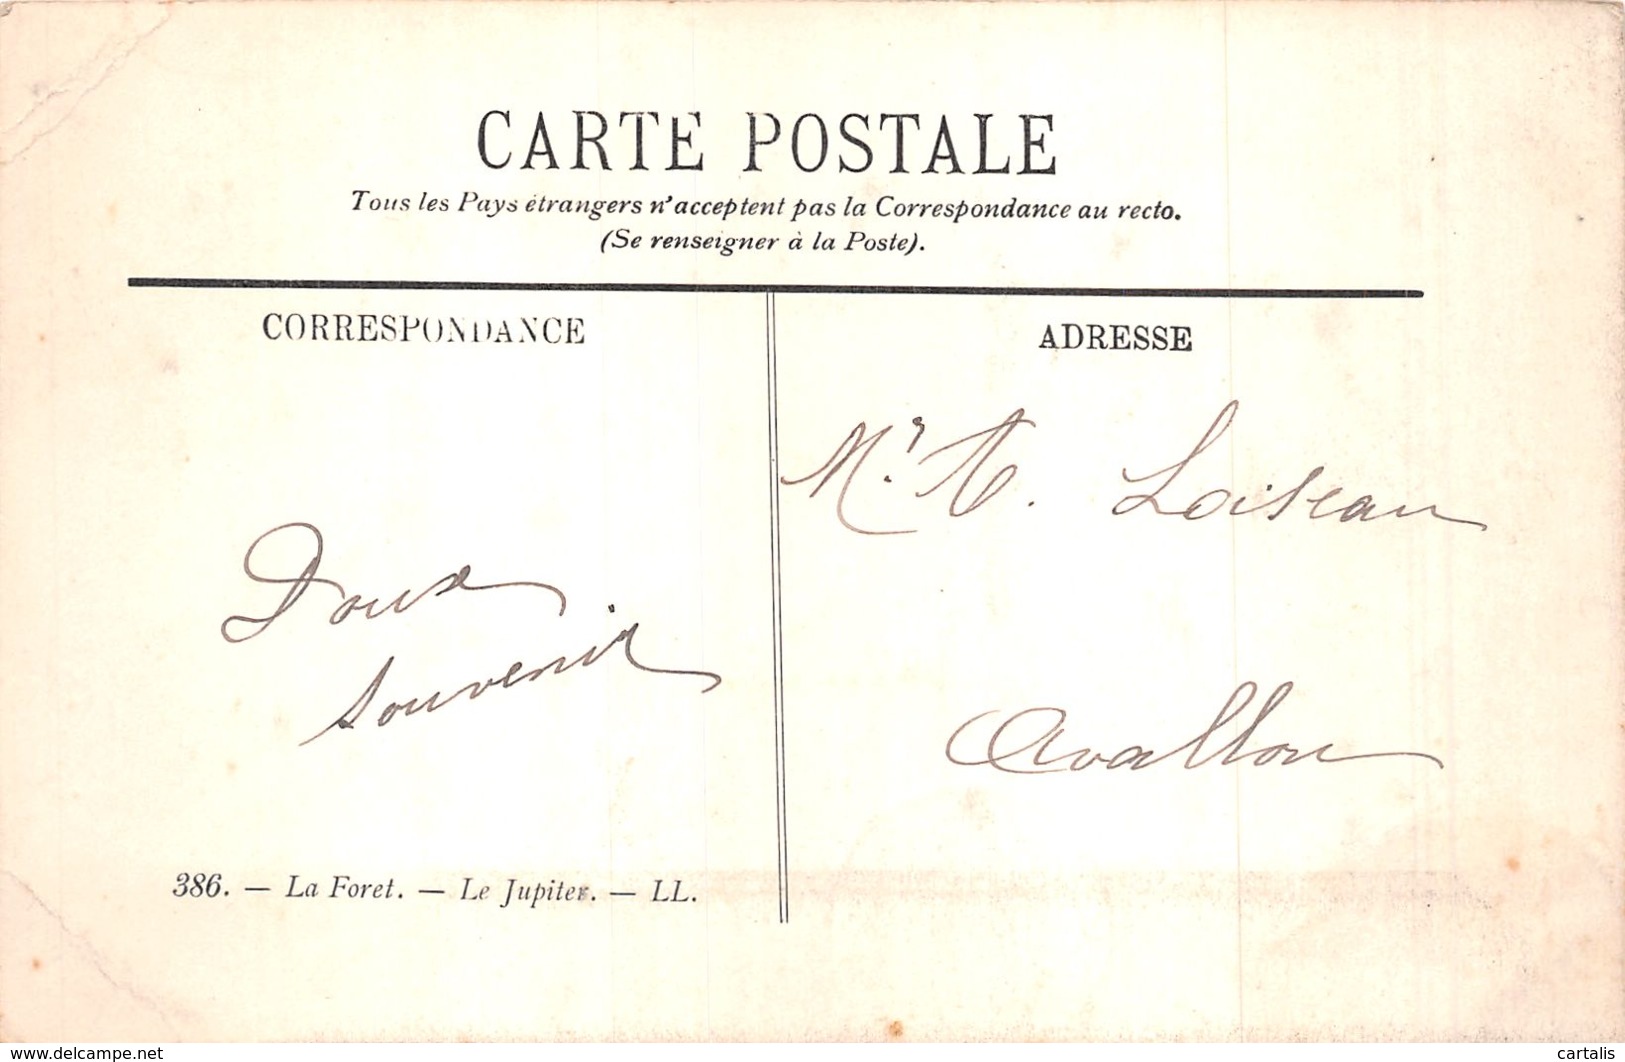 CARTE POSTALE
Tous les Pays étrangers n'acceptent pas la Correspondance au recto.
(Se renseigner à la Poste).
CORRESPONDANCE
ADRESSE
Mr. A. Loiseau
Doux
souvenir
Avallon
386. — La Foret. — Le Jupiter. — LL.
www.delcampe.net
cartalis